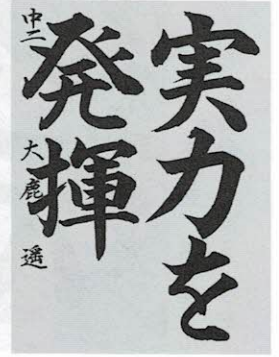 実力を
発揮
中二 大鹿 遥